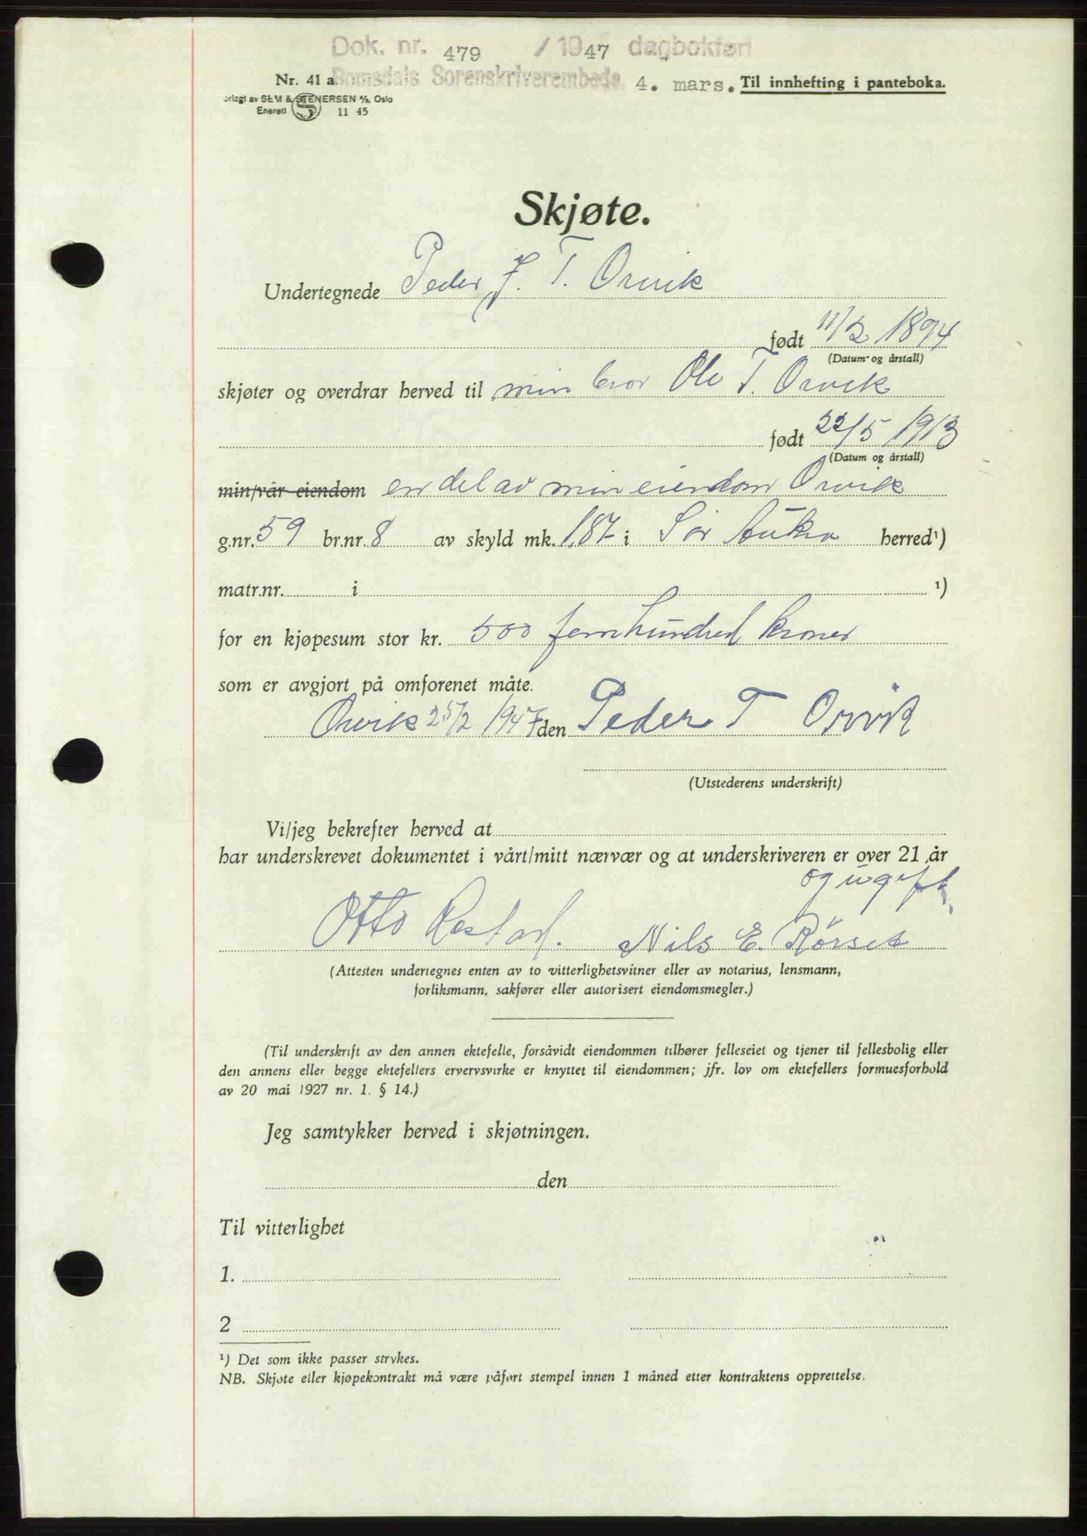 Dok. nr. 479 / 1947 dagbokført
Nr. 41 a Romsdals Sorenskriverembede 4. mars. Til innhefting i panteboka.
orlagt av SEM & STENERSEN A/S, Oslo
Enerett S 11 45
Skjøte.
Undertegnede Peder J. T. Orvik
født 11/2 1894
(Datum og årstall)
skjøter og overdrar herved til min bror Ole T. Orvik
født 22/5 1913
(Datum og årstall)
min/vår eiendom en del av min eiendom Orvik
g.nr. 59 br.nr. 8 av skyld mk. 1,87 i Sør Aukra herred¹)
matr.nr. i ¹)
for en kjøpesum stor kr. 500 femhundred kroner
som er avgjort på omforenet måte.
Orvik 25/2 1947 den Peder T Orvik
(Utstederens underskrift)
Vi/jeg bekrefter herved at
har underskrevet dokumentet i vårt/mitt nærvær og at underskriveren er over 21 år
og ugift
Otto Restad. Nils E. Rørset
(Attesten undertegnes enten av to vitterlighetsvitner eller av notarius, lensmann,
forliksmann, sakfører eller autorisert eiendomsmegler.)
(Til underskrift av den annen ektefelle, forsåvidt eiendommen tilhører felleseiet og tjener til fellesbolig eller
den annens eller begge ektefellers ervervsvirke er knyttet til eiendommen; jfr. lov om ektefellers formuesforhold
av 20 mai 1927 nr. 1. § 14.)
Jeg samtykker herved i skjøtningen.
den
Til vitterlighet
1.
2
¹) Det som ikke passer strykes.
NB. Skjøte eller kjøpekontrakt må være påført stempel innen 1 måned etter kontraktens opprettelse.